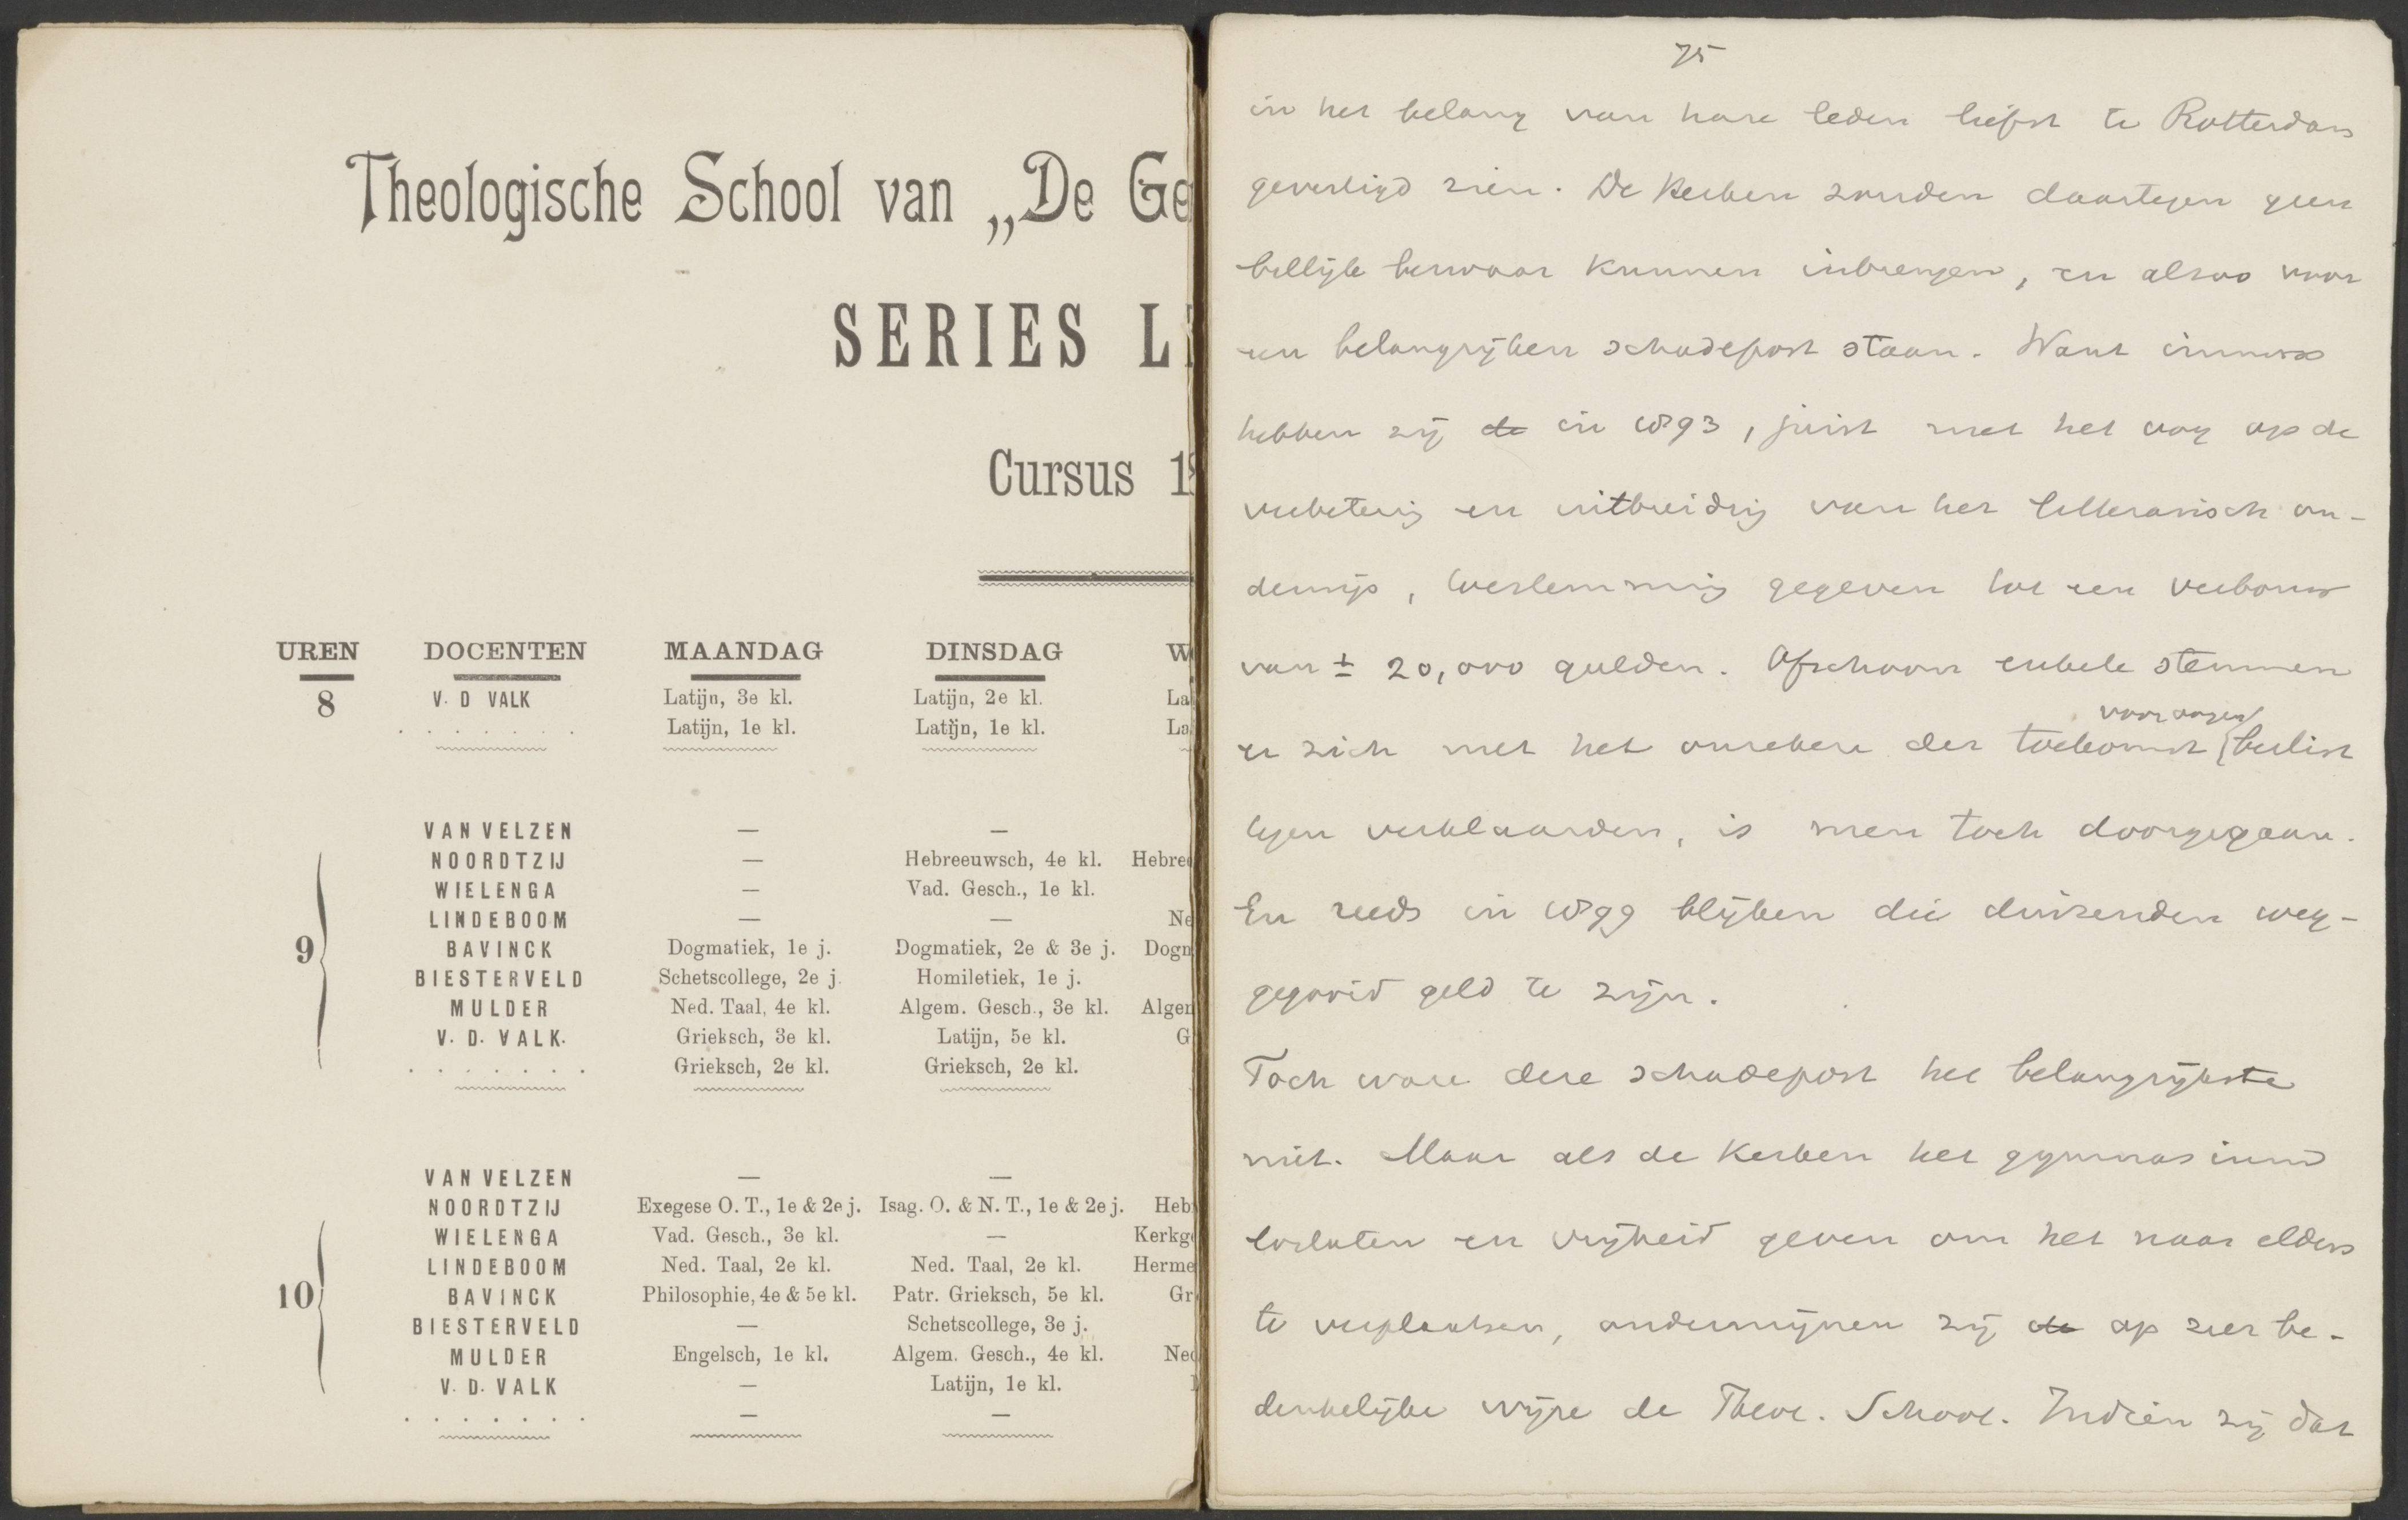 Theologische School van „De Ge
SERIES L
Cursus 18
UREN DOCENTEN MAANDAG DINSDAG W
8 V. D VALK Latijn, 3e kl. Latijn, 2e kl. La
. . . . . . . Latijn, 1e kl. Latijn, 1e kl. La
VAN VELZEN — —
NOORDTZIJ — Hebreeuwsch, 4e kl. Hebree
WIELENGA — Vad. Gesch., 1e kl.
LINDEBOOM — — Ne
9 BAVINCK Dogmatiek, 1e j. Dogmatiek, 2e & 3e j. Dogn
BIESTERVELD Schetscollege, 2e j. Homiletiek, 1e j.
MULDER Ned. Taal, 4e kl. Algem. Gesch., 3e kl. Algen
V. D. VALK. Grieksch, 3e kl. Latijn, 5e kl. G
. . . . . . . Grieksch, 2e kl. Grieksch, 2e kl.
VAN VELZEN — —
NOORDTZIJ Exegese O. T., 1e & 2e j. Isag. O. & N. T., 1e & 2e j. Heb
WIELENGA Vad. Gesch., 3e kl. — Kerkg
LINDEBOOM Ned. Taal, 2e kl. Ned. Taal, 2e kl. Herme
10 BAVINCK Philosophie, 4e & 5e kl. Patr. Grieksch, 5e kl. Gr
BIESTERVELD — Schetscollege, 3e j.
MULDER Engelsch, 1e kl. Algem. Gesch., 4e kl. Ned
V. D. VALK — Latijn, 1e kl.
. . . . . . . — —
75
in het belang van hare leden liefst te Rotterdam
gevestigd zien. De Kerken zouden daartegen geen
billijk bezwaar kunnen inbrengen, en alzoo voor
een belangrijken schadepost staan. Want immers
hebben zij de in 1893, juist met het oog op de
verbetering en uitbreiding van het litterarisch on-
derwijs, toestemming gegeven tot een verbouw
van ± 20,000 gulden. Ofschoon enkele stemmen
er zich met het onzekere der toekomst voor oogen beslist
tegen verklaarden, is men toch doorgegaan.
En reeds in 1899 blijken die duizenden weg-
gegooid geld te zijn.
Toch ware deze schadepost het belangrijkste
niet. Maar als de Kerken het gymnasium
loslaten en vrijheid geven om het naar elders
te verplaatsen, ondermijnen zij de op zeer be-
denkelijke wijze de Theol. School. Indien zij dat